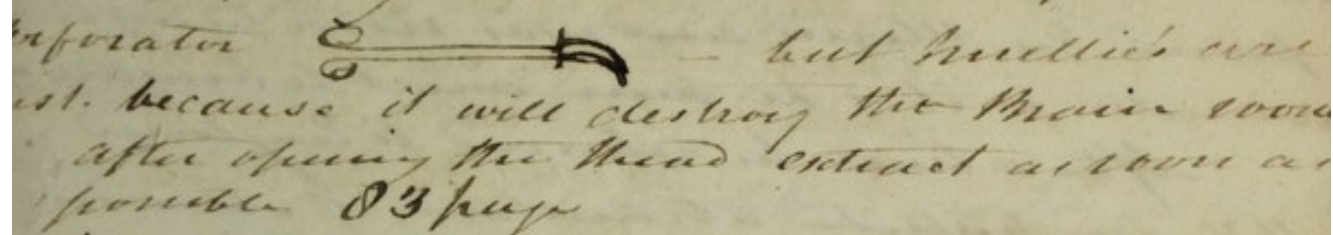 perforator - but Smellie's are
best. because it will destroy the Brain soone
after opening the Head extract as soon as
possible 83 page